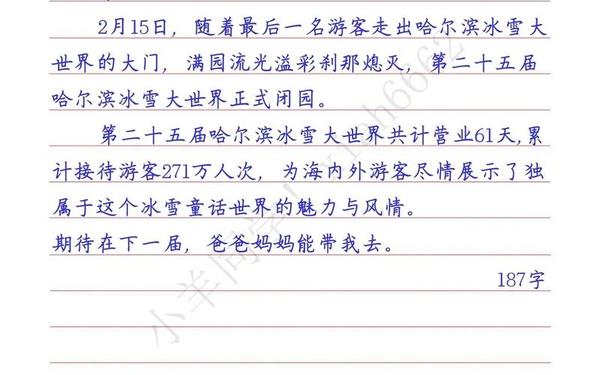 2月15日，随着最后一名游客走出哈尔滨冰雪大
世界的大门，满园流光溢彩刹那熄灭，第二十五届
哈尔滨冰雪大世界正式闭园。
第二十五届哈尔滨冰雪大世界共计营业61天,累
计接待游客271万人次，为海内外游客尽情展示了独
属于这个冰雪童话世界的魅力与风情。
期待在下一届，爸爸妈妈能带我去。
187字
小羊同学